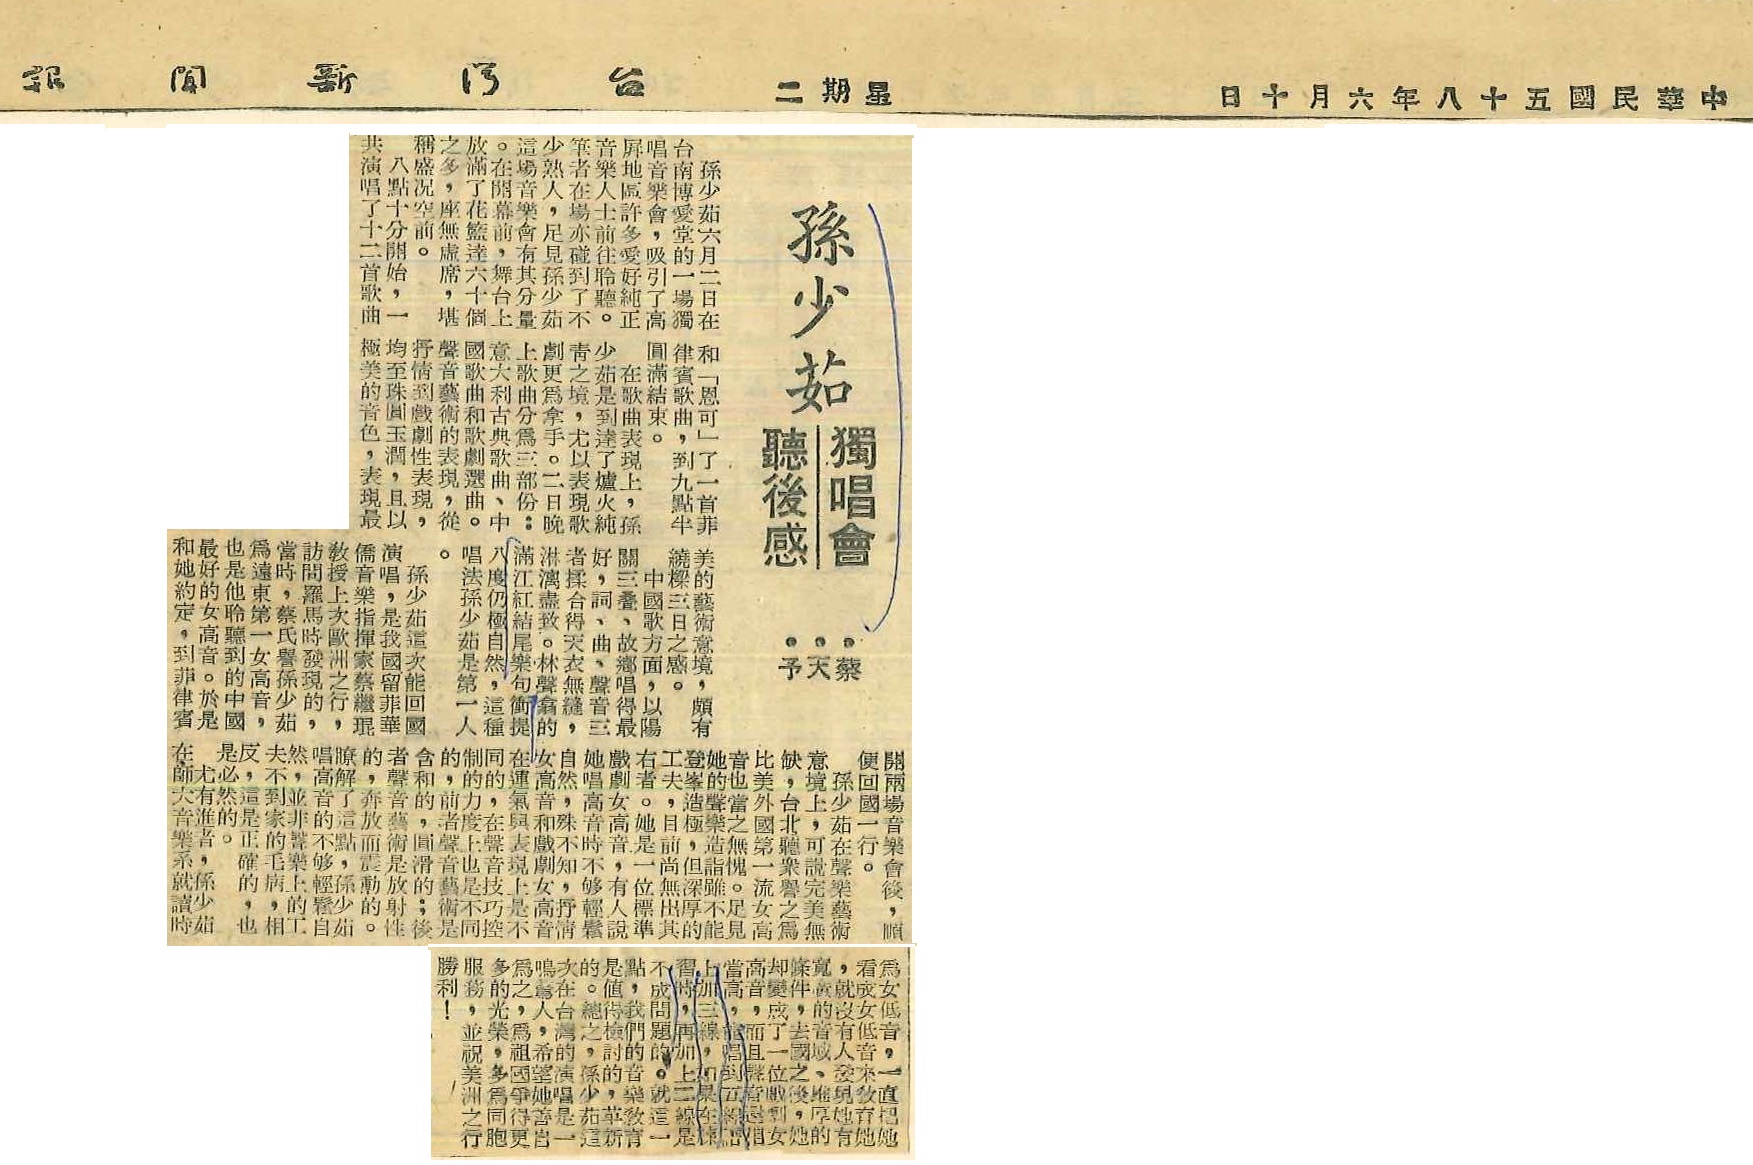 中華民國五十八年六月十日
星期二
台灣新聞報
孫少茹
獨唱會
聽後感
蔡天予
孫少茹六月二日在
台南博愛堂的一場獨
唱音樂會，吸引了高
屏地區許多愛好純正
音樂人士前往聆聽。
筆者在場亦碰到了不
少熟人，足見孫少茹
這場音樂會有其分量
。在開幕前，舞台上
放滿了花籃達六十個
之多，座無虛席，堪
稱盛況空前。
八點十分開始，一
共演唱了十二首歌曲
和「恩可」了一首菲
律賓歌曲，到九點半
圓滿結束。
在歌曲表現上，孫
少茹是到達了爐火純
青之境，尤以表現歌
劇更為拿手。二日晚
上歌曲分為三部份：
意大利古典歌曲、中
國歌曲和歌劇選曲。
聲音藝術的表現，從
抒情到戲劇性表現，
均至珠圓玉潤，且以
極美的音色，表現最
美的藝術意境，頗有
繞樑三日之感。
中國歌方面，以陽
關三疊、故鄉唱得最
好，詞、曲、聲音三
者揉合得天衣無縫，
淋漓盡致。林聲翕的
滿江紅結尾樂句衝提
八度仍極自然，這種
唱法孫少茹是第一人
。
孫少茹這次能回國
演唱，是我國留菲華
僑音樂指揮家蔡繼琨
教授上次歐洲之行，
訪問羅馬時發現的，
當時，蔡氏譽孫少茹
為遠東第一女高音，
也是他聆聽到的中國
最好的女高音。於是
和她約定，到菲律賓
開兩場音樂會後，順
便回國一行。
孫少茹在聲樂藝術
意境上，可說完美無
缺，台北聽眾譽之為
比美外國第一流女高
音也當之無愧。足見
她的聲樂造詣雖不能
登峯造極，但深厚的
工夫，目前尚無出其
右者。她是一位標準
戲劇女高音，有人說
她唱高音時不够輕鬆
自然，殊不知，抒情
女高音和戲劇女高音
在運氣與表現上是不
同的，在聲音技巧控
制的力度上也是不同
的，前者聲音藝術是
含和的，圓滑的；後
者聲音藝術是放射性
的，奔放而震動的。
瞭解了這點，孫少茹
唱高音的不够輕鬆自
然，並非聲樂上的工
夫不到家的毛病，相
反，這是正確的，也
是必然的。
尤有進者，孫少茹
在師大音樂系就讀時
為女低音，一直把她
看成女低音來教育她
，就沒有人發現她有
寬廣的音域、堆厚的
條件，去國之後，她
却變成了一位戲劇女
高音，而且聲音還相
當高，能唱到五線譜
上加三線，如果在練
習時，再加上二線是
不成問題的。就這一
點，我們的音樂教育
是值得檢討的，革新
的。總之，孫少茹這
次在台灣的演唱是一
鳴驚人，希望她善自
為之，為祖國爭得更
多的光榮，多為同胞
服務，並祝美洲之行
勝利！